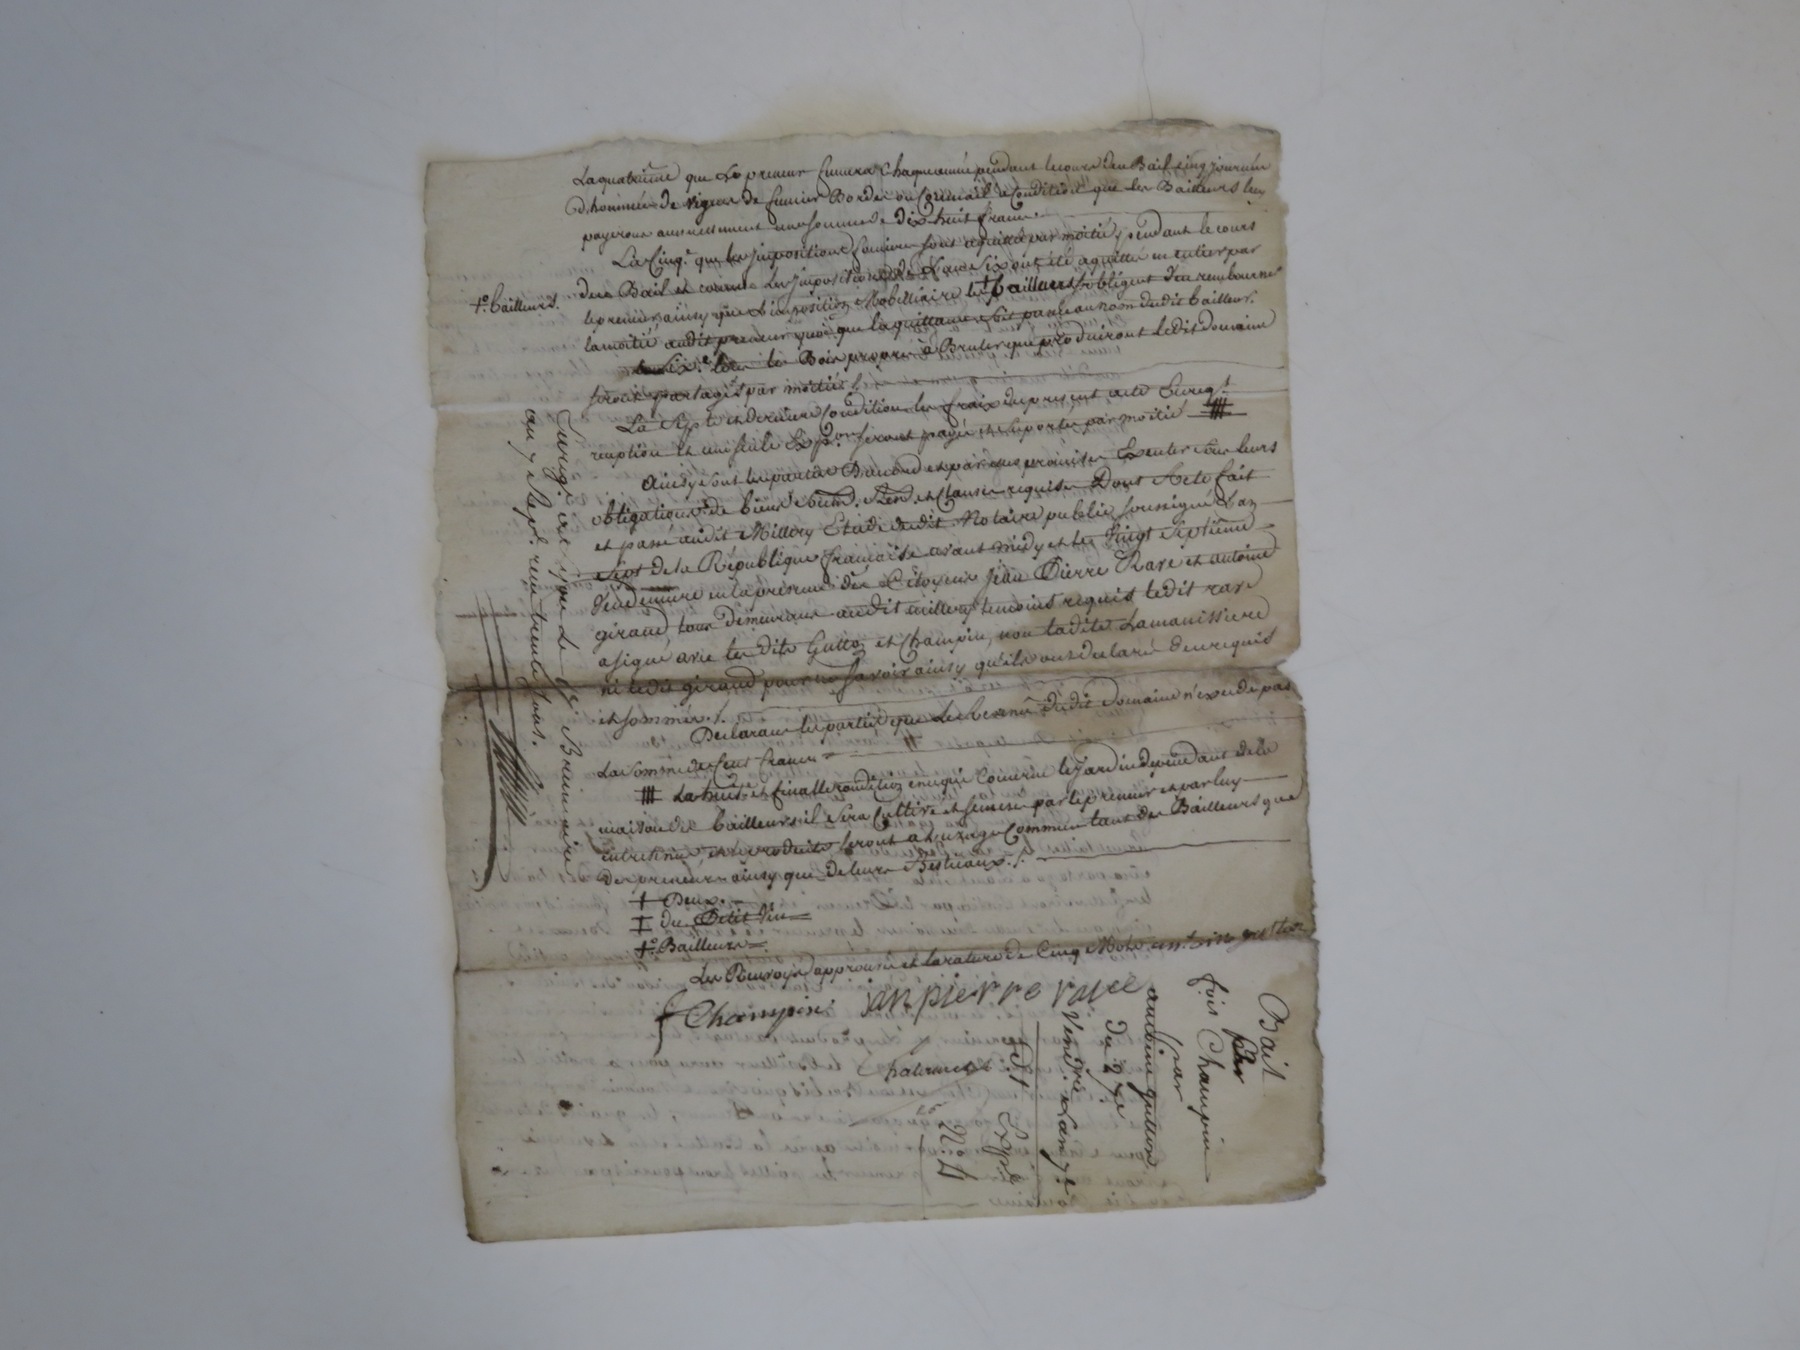 La quatrieme que Le preneur fumera Chaque année pendant le cours du Bail Cinq journée
d'hommée de vignes de fumier Bordée ou Commail a Condition que les Bailleurs luy
payeront annuellement une somme de dix huit francs.
La Cinq.e que les impositions foncieres sont aquitté par moitié, pendant le cours
du Bail et comme Les impositions de L'an Six ont été aquitté en entier par
le preneur ainsy que L'imposition Mobilliaire les † bailleurs s'obligent d'en rembourser
†° bailleurs.
la moitié audit preneur quoi que la quittance soit passé au nom dudit bailleur.
La Six.e que le Bois propre à Bruler que produiront Ledit domaine
seront partagés par moitiés /.
La Sept.e et derniere Condition les fraix du present acte Enregt.
reception et une seule Expon. seront payé et suporter par moitié
Ainsy sont les parties D'accord et par elles promis Executer sous leurs
obligations de biens soumd. Rend. et Clauses requises Dont Acte fait
et passé audit Millery Etude dudit Notaire public soussigné L'an
Sept de la République française avant midy et les Vingt Septieme
Vendemiere en la présence des Citoyens Jean Pierre Rave et antoine
giraud, tous demeurans audit millery temoins requis ledit rave
a signé avec les dits Gutton et Champin, non ladite Lamanissiere
ni ledit giraud pour ne savoir ainsy qu'ils ont declaré de ce requis
et sommés /.
Declarant les parties que Le Revenu dudit Domaine n'exede pas
La Somme de Cent francs
La huit.e et finalle condition en ce qui Concerne le Jardin dependant de la
maison des bailleurs il sera Cultivé et semée par le preneur et par luy
entretenu et les produits seront a L'uzage Commun tant des Bailleurs que
des preneur ainsy que de leurs Bestiaux /.
† Deux.
‡ du Petit Vin
†° Bailleurs
Les Renvoys approuvé et la rature de Cinq Mots antoine gutton
Champin jan pierre rave
Enregt. a Le 9 Brumaire
an 7 Reçu trente sous.
Bail
par
fois Champin
a antoine gutton
du 27e
Vend.re L'an 7e
Expé
N.o 4